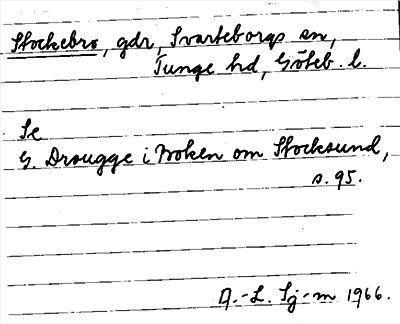 Stockebro, gdr, Svarteborgs sn,
Tunge hd, Göteb. l.
Se
G. Drougge i Boken om Stocksund,
s. 95.
A.-L. Sj-m 1966.